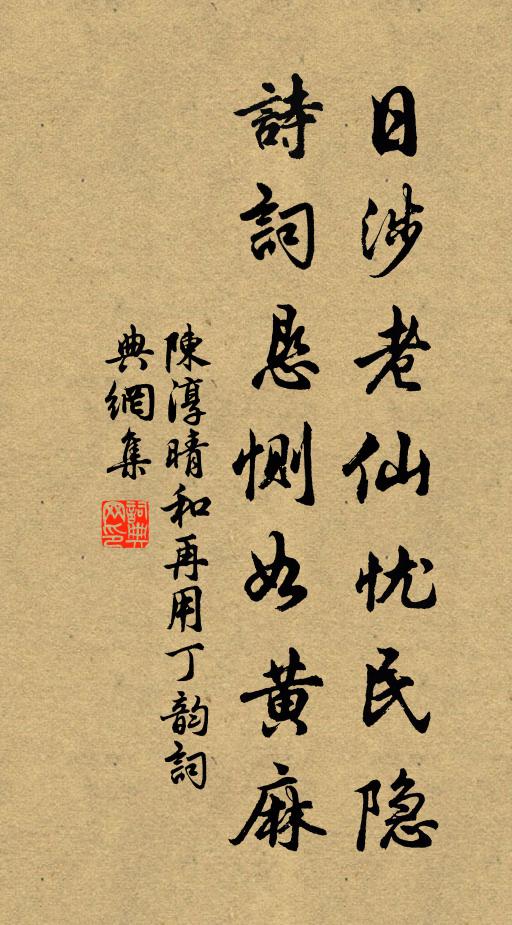 日涉老仙忧民隐
詩詞恳惻如黄麻
陳淳晴和再用丁韵詞
典網集
詞典網印